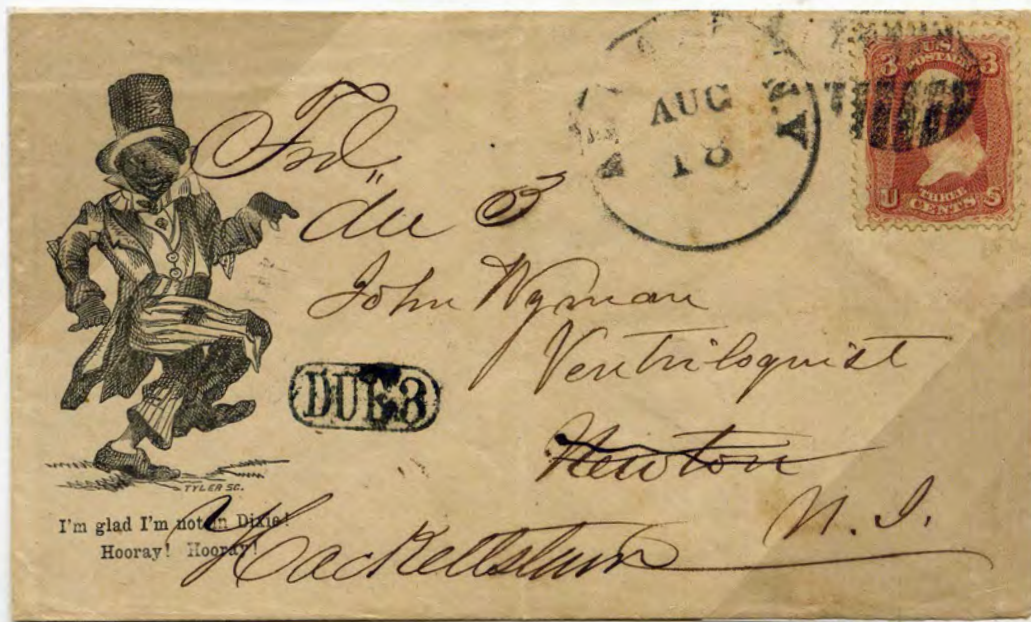 U.S. POSTAGE
3 3
THREE
U CENTS S
AUG
18
Fwd,,
due 3
John Wyman
Ventriloquist
Newton
N. J.
Hackettstown
DUE 3
TYLER SC.
I'm glad I'm not in Dixie!
Hooray! Hooray!